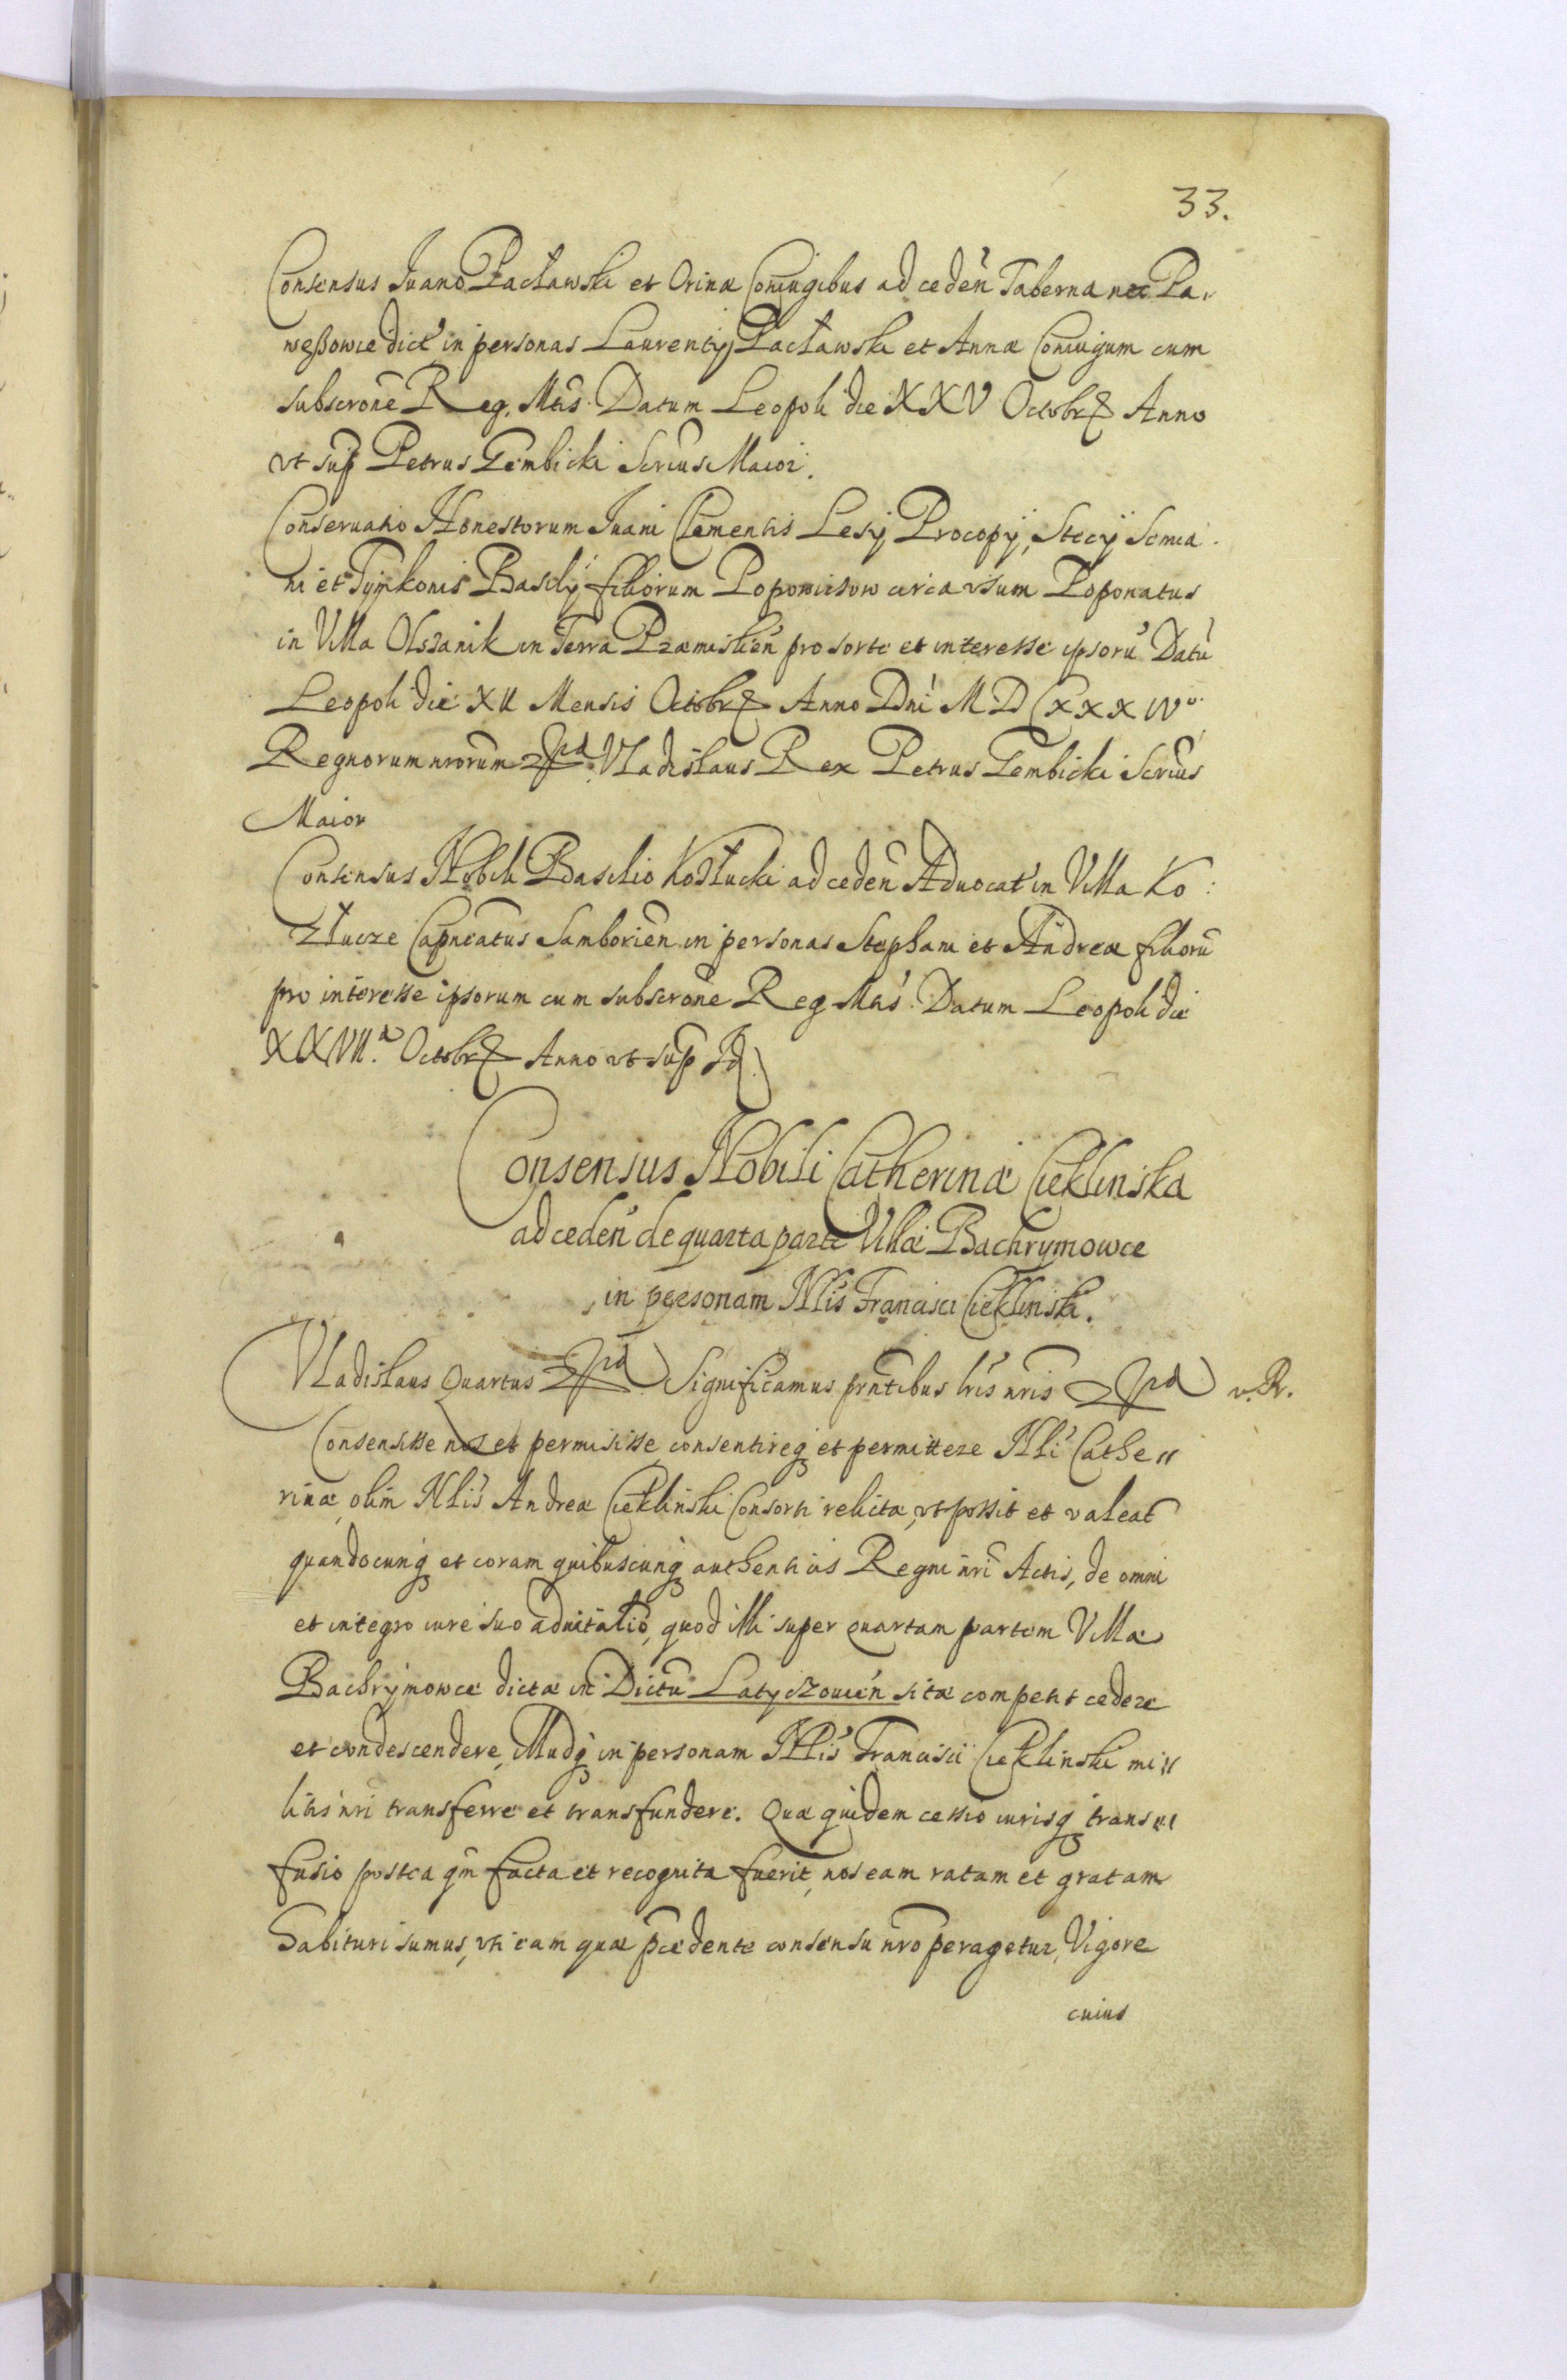 33.
Consensus Iuano Pacławski et Orinæ Coniugibus ad ceden̄ Taberna nec Pa,
weßowce dict' in personas Laurentij Pacławski et Annæ Coniugum cum
subscrone Reg. Mtis. Datum Leopoli die XXV Octobr Anno
vt sup Petrus Gembicki Scrius Maior.
Conseruatio Honestorum Iuani Clementis Lesij Procopij, Stecij Semia.
ni et Tymkonis Basilij filiorum Popowiczow circa vsum Poponatus
in Villa Olszanik in Terra Præmislień pro sorte et interesse ipsorū Datū
Leopoli die XII Mensis Octobr Anno Dni MDCXXXIVo.
Regnorum nrorum Vladislaus Rex Petrus Gembicki Scrius
Maior
Consensus Nobili Basilio Kozłucki ad ceden̄ Aduocat' in Villa Ko:
złucze Capneatus Samborien̄ in personas Stephani et Andreæ filiorū
pro interesse ipsorum cum subscrone Reg Mtis. Datum Leopoli die
XXVII.a Octobr Anno vt sup Id
Consensus Nobili Catherinæ Cieklinska
ad ceden̄ de quarta parte Villæ Bachrymowce
in personam Nlis Francisci Cieklinski.
Vladislaus Quartus Significamus prntibus lris nris v. R.
Consensisse nos et permisisse, consentireq et permittere Nli Cathe〃
rinæ, olim Nlis Andreæ Cieklinski Consorti relictæ, vt possit et valeat
quandocunq et coram quibuscunq authenticis Regni nri Actis, de omni
et integro iure suo aduitalio, quod illi super quartam partem Villæ
Bachrymowce dictæ in Dictū Latyczouień sitæ competit cedere
et condescendere, Illudq in personam Nlis Francisci Cieklinski mi〃
litis nri transferre et transfundere. Quæ quidem cessio iurisq trans〃
fusio postea qm facta et recognita fuerit, nos eam ratam et gratam
habituri sumus, vti eam quæ pcedente consensu nro peragetur, Vigore
cuius